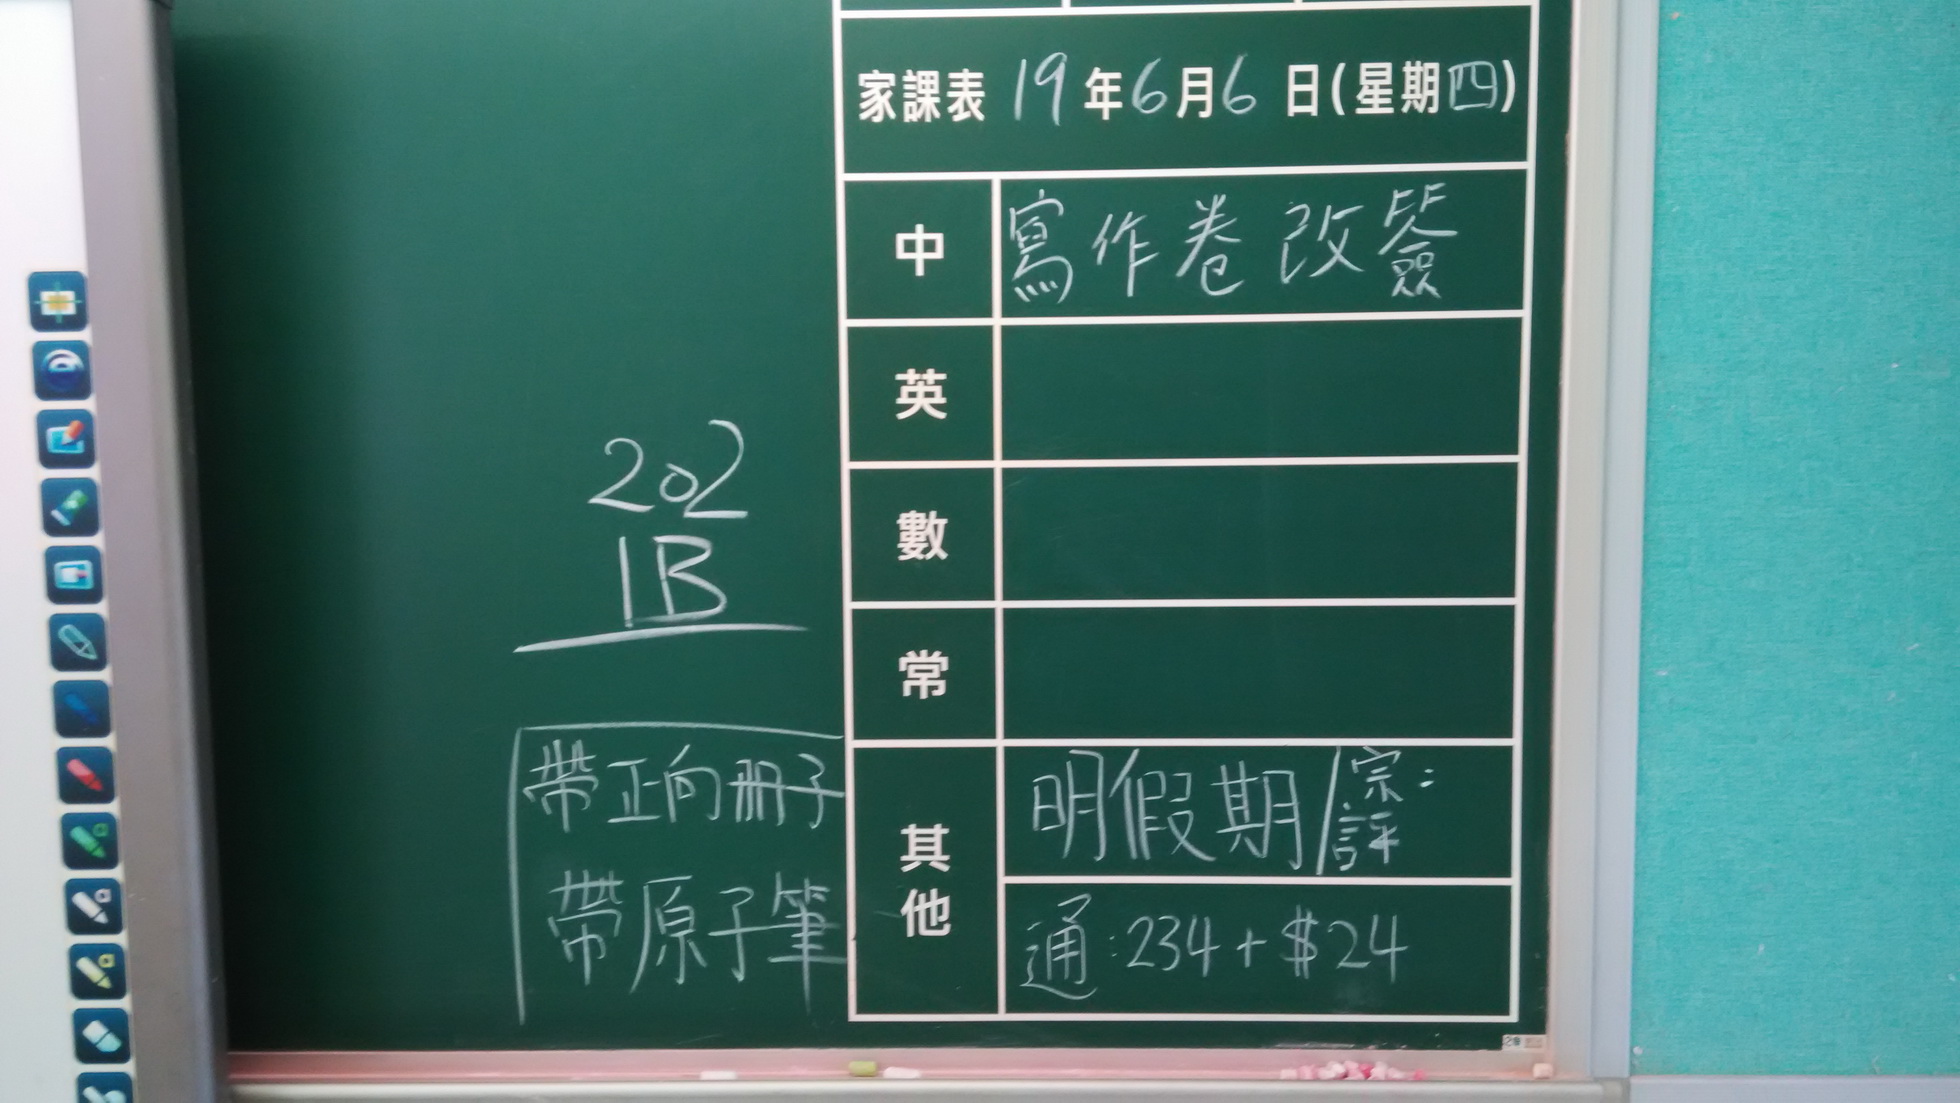 家課表 19年6月6日(星期四)
中 寫作卷改簽
英
數
常
其他 明假期/宗評:
通:234+$24
202
1B
帶正向冊子
帶原子筆